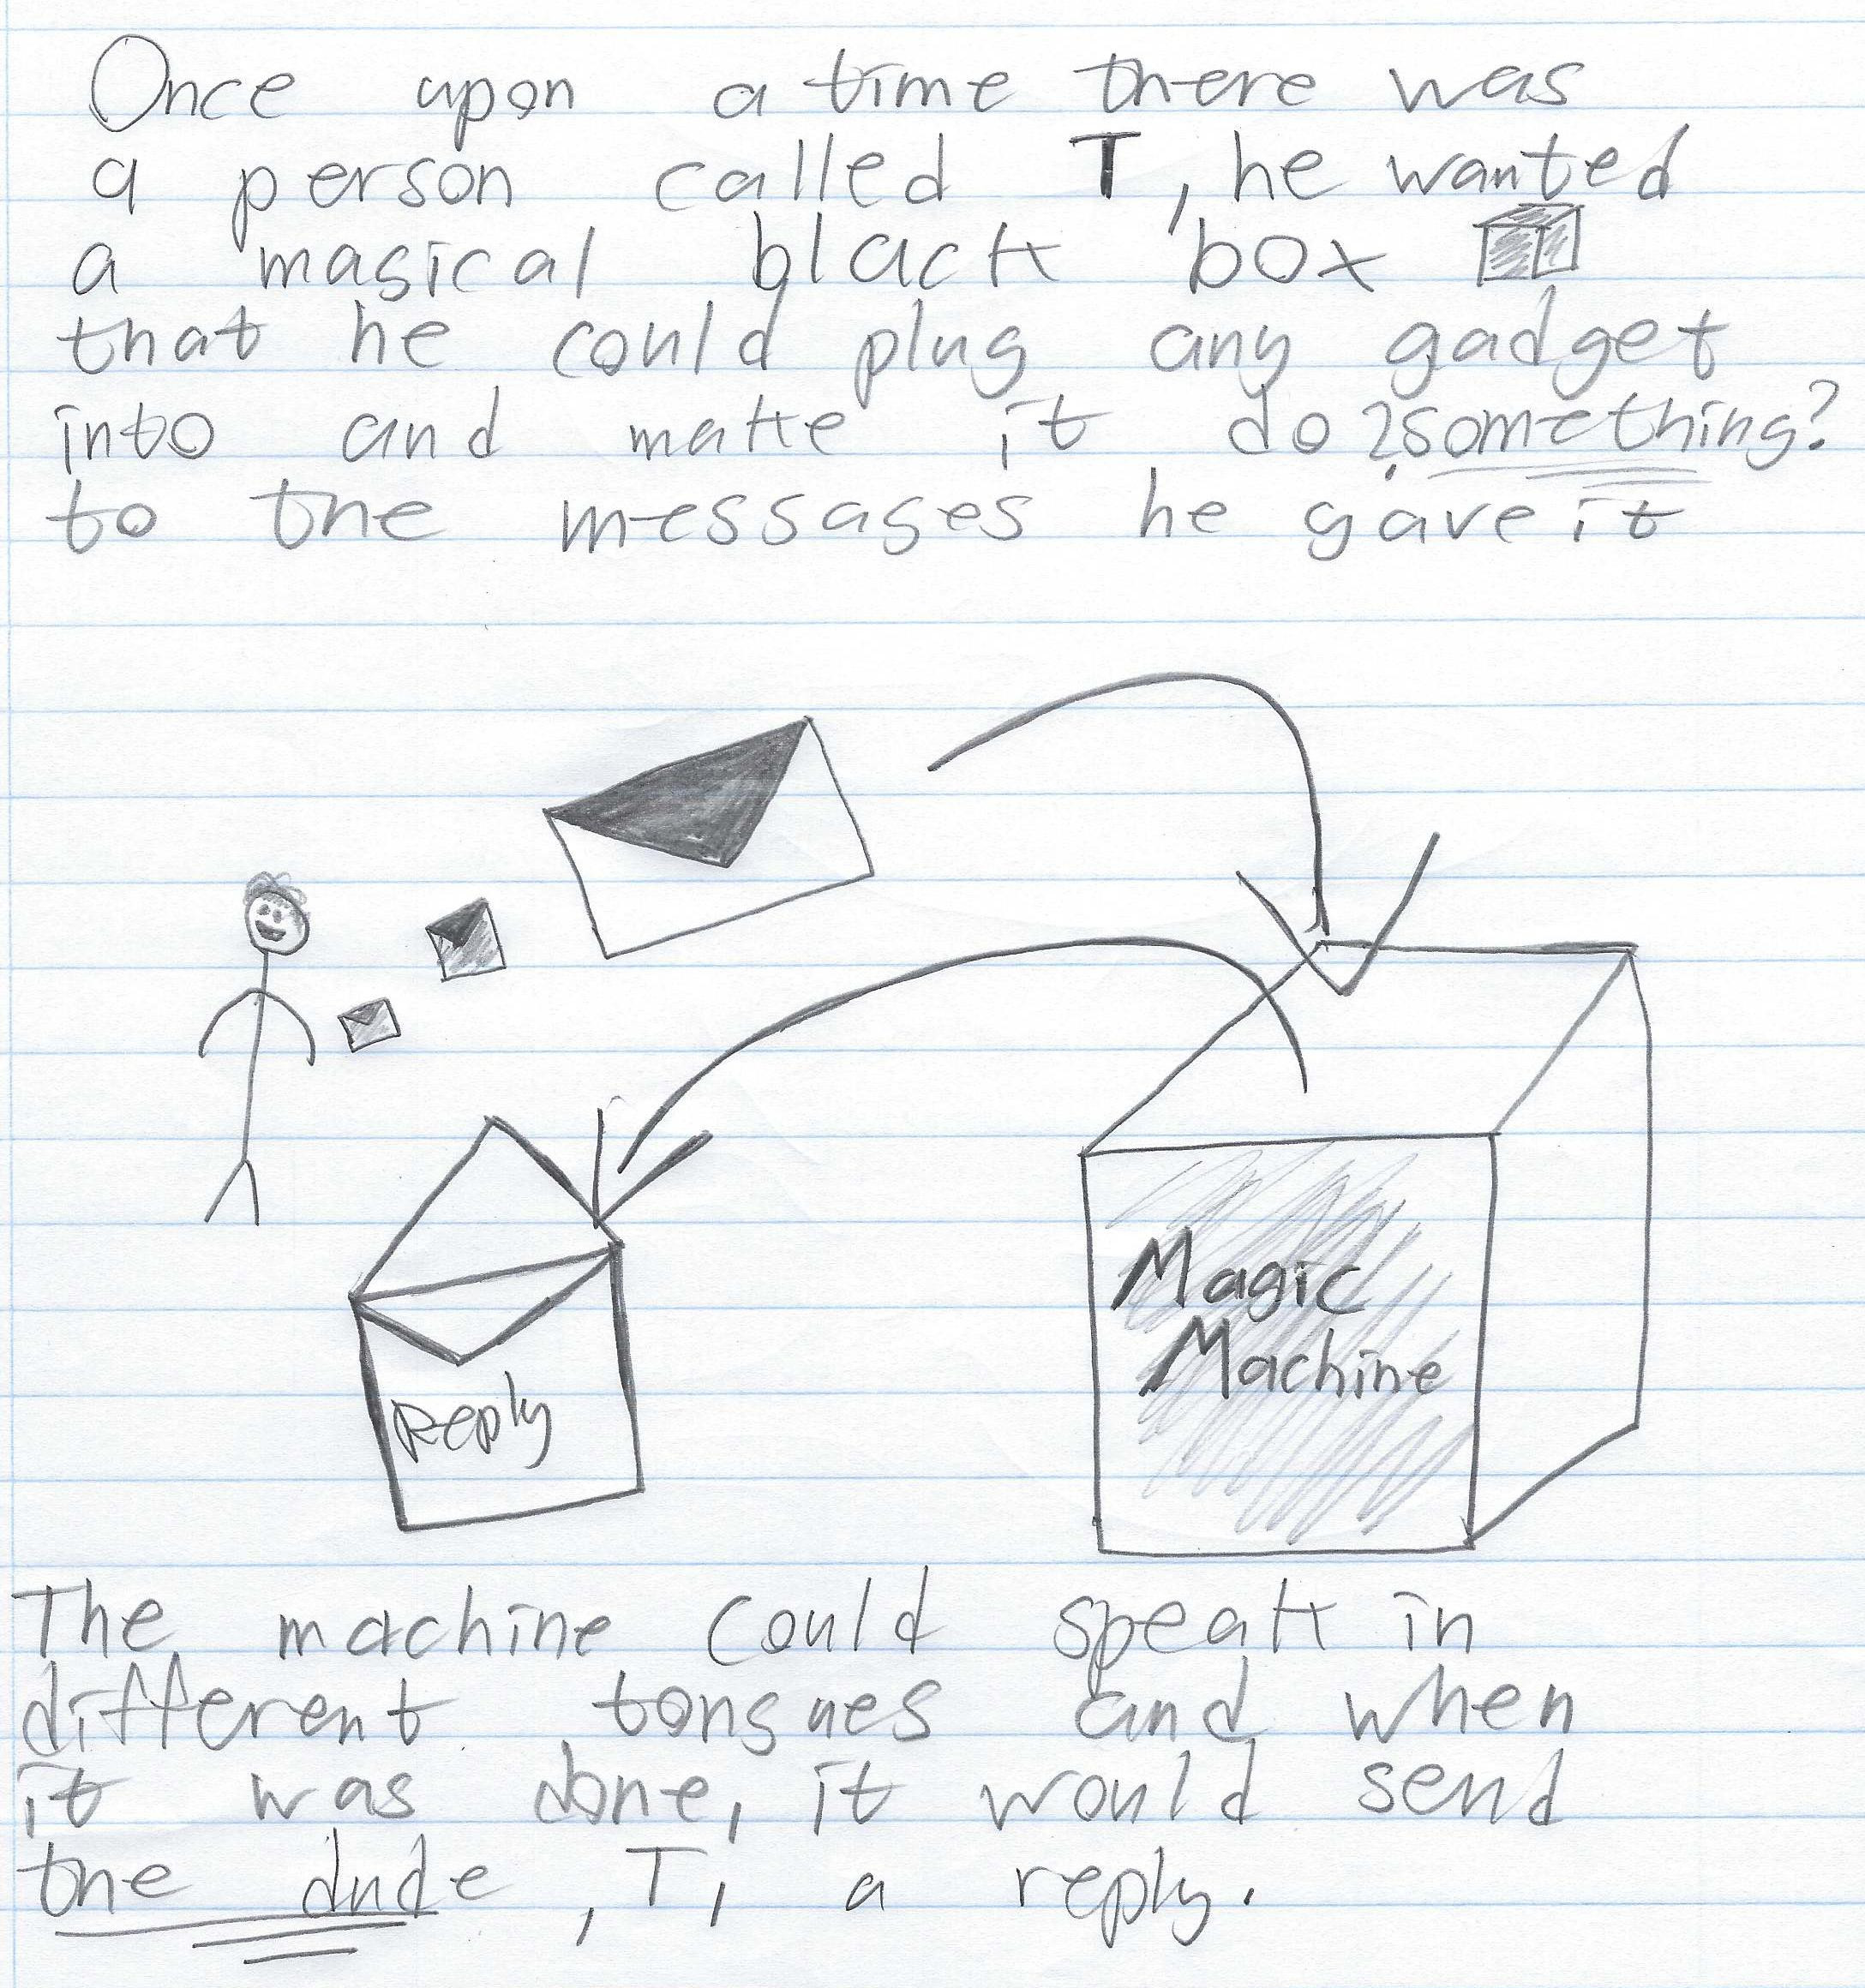 Once upon a time there was
a person called T, he wanted
a magical black box
that he could plug any gadget
into and make it do ?something?
to the messages he gave it
Reply
Magic
Machine
The machine could speak in
different tongues and when
it was done, it would send
the dude, T, a reply.